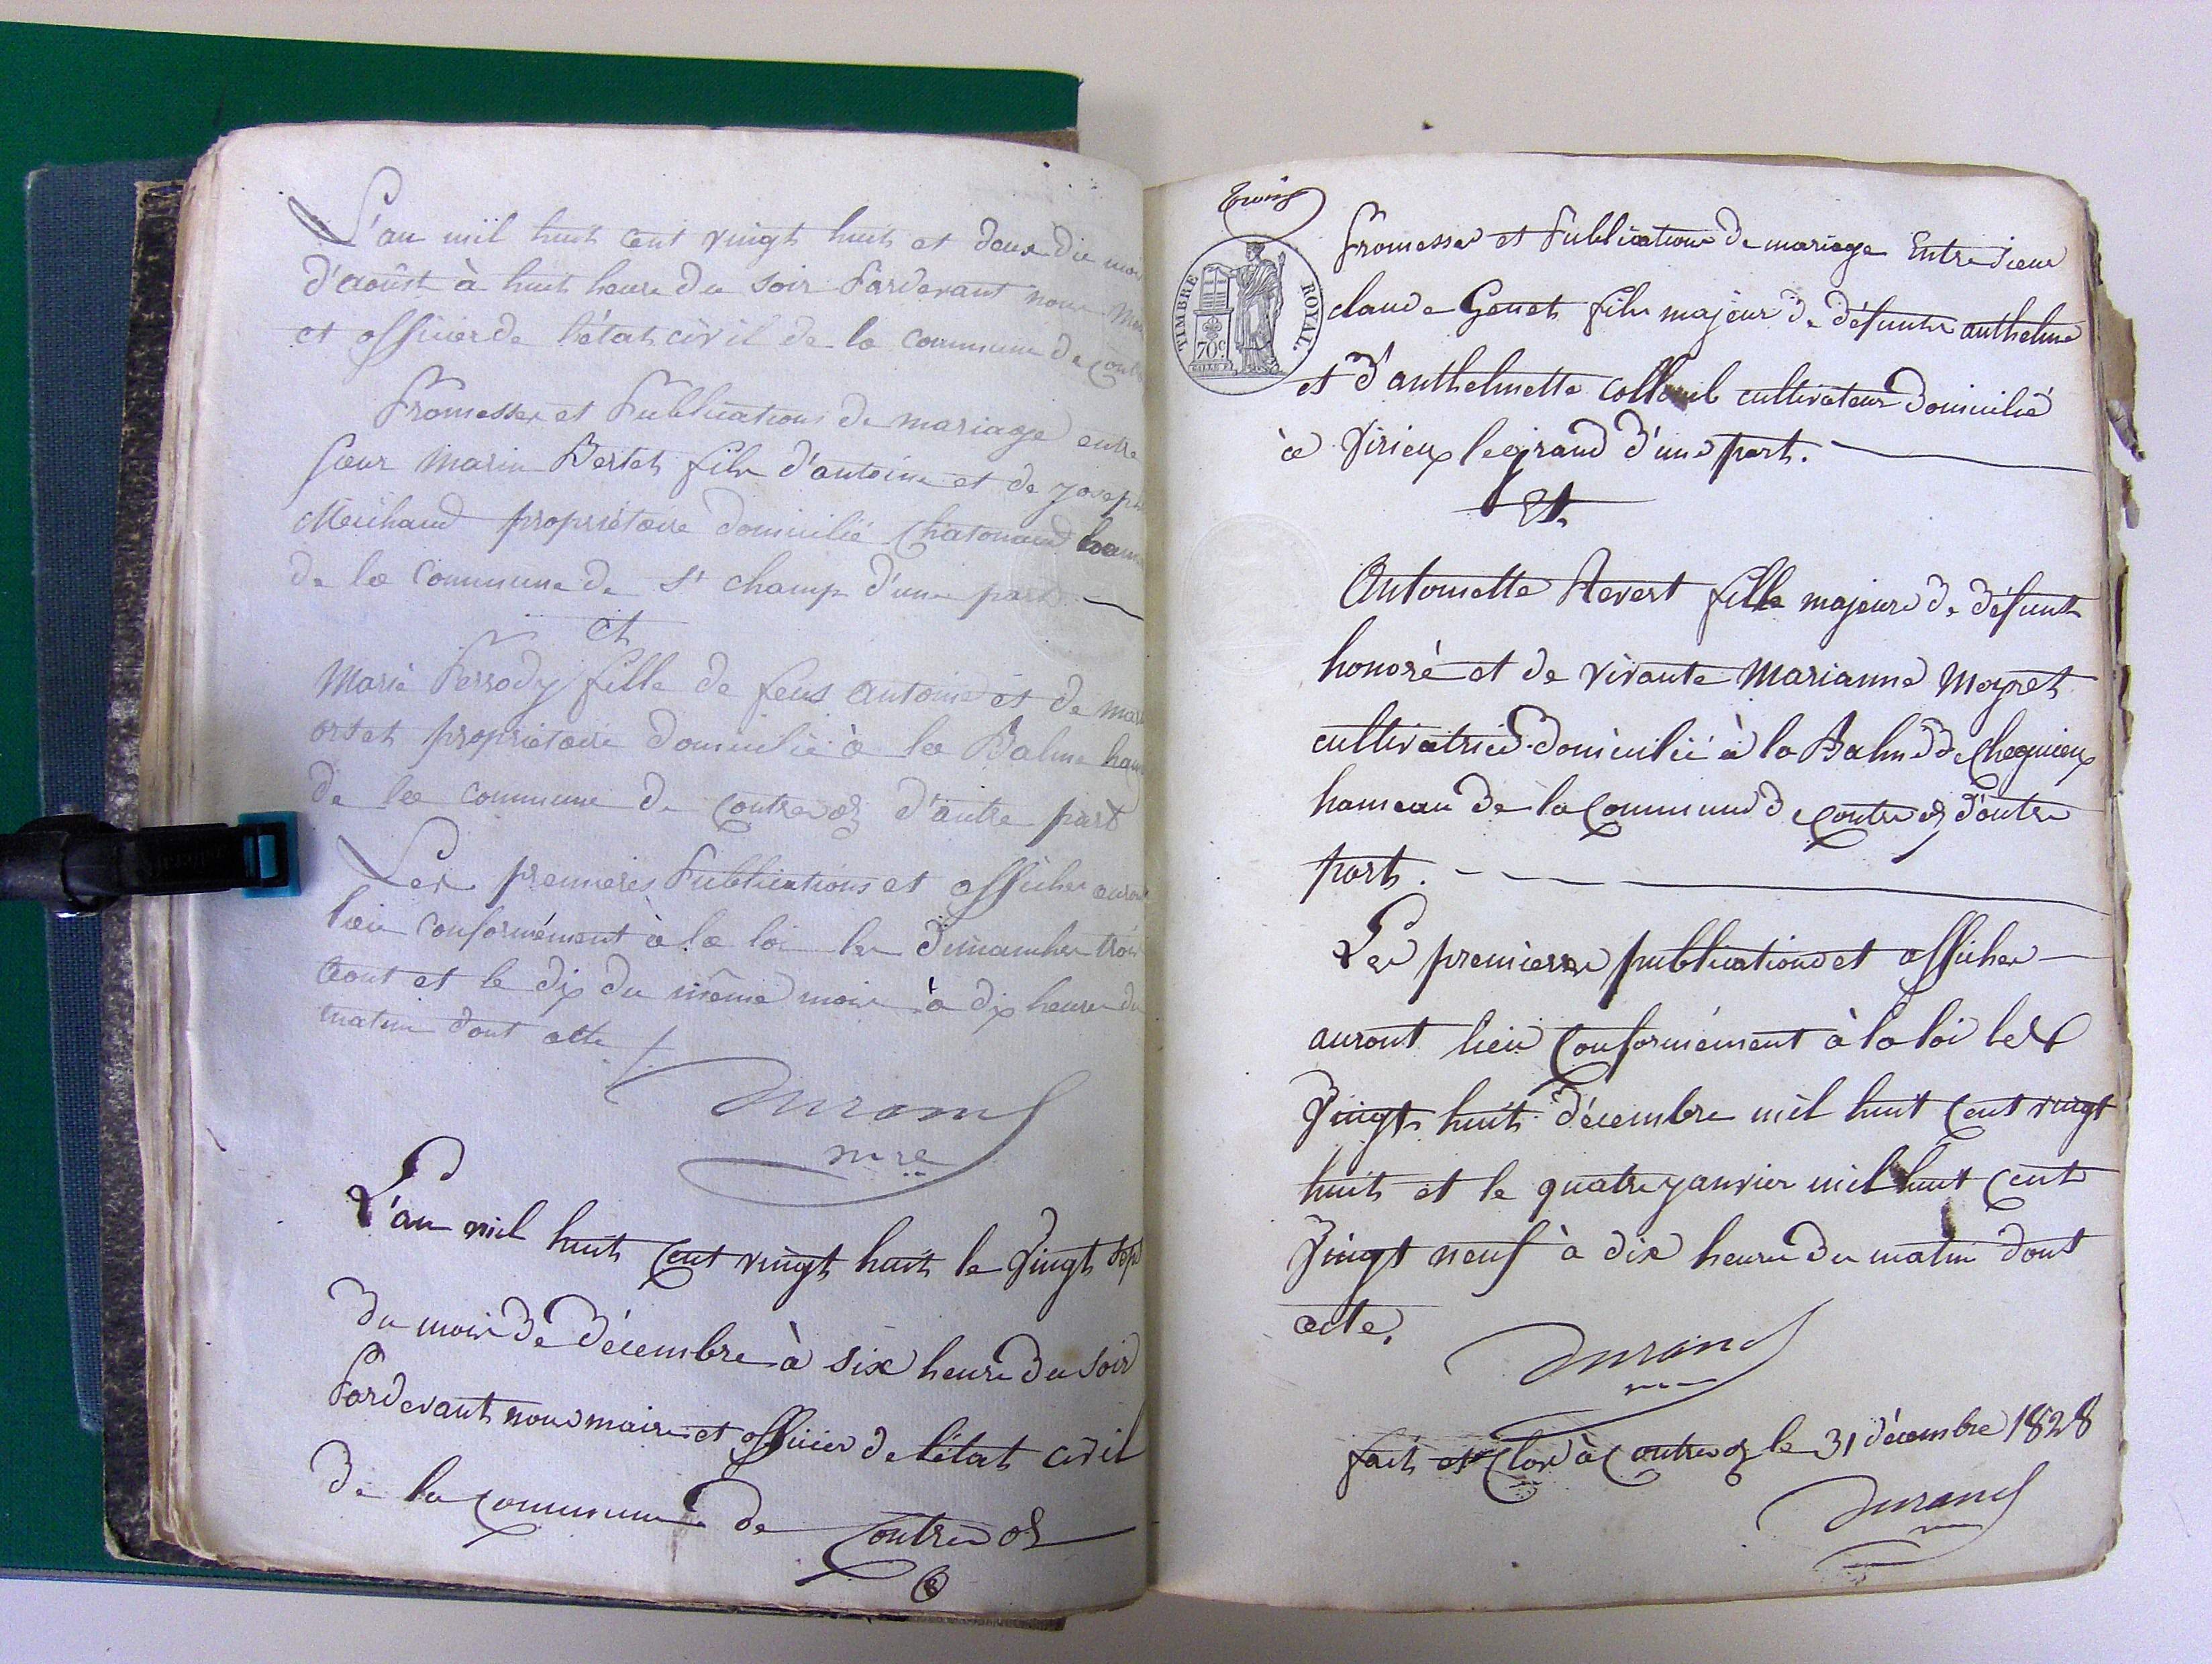 L'an mil huit cent vingt huit et deux du moi
d'août à huit heure du soir Pardevant nous
et officier de l'état civil de la commune de
Promesses et Publications de mariage entre
sieur Marin Bertet fils d'antoine et de joseph
propriétaire domicilié
de la Commune de St champ d'une part
et
Marie Perrody fille de feus Antoine et de
orset propriétaire domicilié à la Balme ham
de la commune de Contrevoz d'autre part
Les premieres Publications et affiches auront
lieu conformément à la loi les dimanches trois
aout et le dix du même mois à dix heure du
matin dont acte
Durand
mre
L'an mil huit cent vingt huit le vingt sept
du mois de décembre à six heure du soir
Pardevant nous maire et officier de l'état civil
de la commune de Contrevoz
Trois
TIMBRE ROYAL
70c
Promesses et Publications de mariage Entre sieur
claude Genet fils majeur de défunts anthelme
et d'anthelmette cultivateur domicilié
à Virieu legrand d'une part.
Et
Antoinette Revert fille majeure de défunt
honoré et de vivante Marianne Meyret
cultivatrice domicilié à la Balme de
hameau de la Commune de Contrevoz d'autre
part.
Les premieres publications et affiches
auront lieu Conformément à la loi les
Vingt huit décembre mil huit Cent vingt
huit et le quatre janvier mil huit Cent
Vingt neuf à dix heure du matin dont
acte.
Durand
fait et Clos à Contrevoz le 31 décembre 1828
Durand